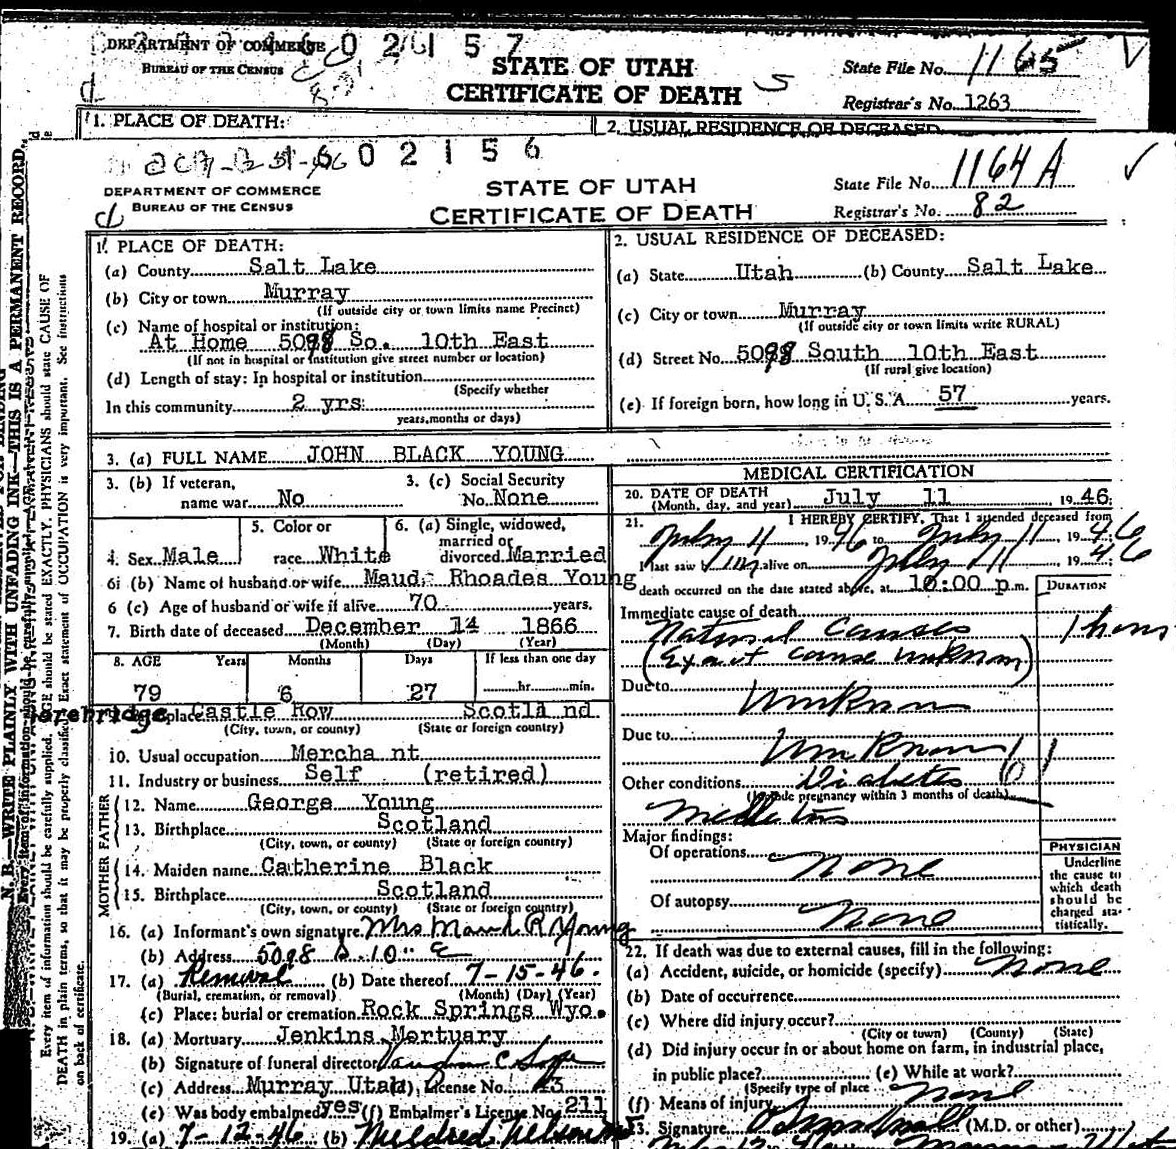 DEPARTMENT OF COMMERCE
0 2 1 5 7
BUREAU OF THE CENSUS
STATE OF UTAH
CERTIFICATE OF DEATH
State File No. 1165
Registrar's No. 1263
1. PLACE OF DEATH:
2. USUAL RESIDENCE OF DECEASED
0 2 1 5 6
DEPARTMENT OF COMMERCE
BUREAU OF THE CENSUS
STATE OF UTAH
CERTIFICATE OF DEATH
State File No. 1164 A
Registrar's No. 82
1. PLACE OF DEATH:
(a) County Salt Lake
(b) City or town Murray
(If outside city or town limits name Precinct)
(c) Name of hospital or institution:
At Home 5098 So. 10th East
(If not in hospital or institution give street number or location)
(d) Length of stay: In hospital or institution
(Specify whether
In this community 2 yrs.
years, months or days)
2. USUAL RESIDENCE OF DECEASED:
(a) State Utah (b) County Salt Lake
(c) City or town Murray
(If outside city or town limits write RURAL)
(d) Street No. 5098 South 10th East
(If rural give location)
(e) If foreign born, how long in U. S. A. 57 years.
3. (a) FULL NAME JOHN BLACK YOUNG
3. (b) If veteran,
name war No
3. (c) Social Security
No. None
4. Sex Male
5. Color or
race White
6. (a) Single, widowed,
married or
divorced Married
6 (b) Name of husband or wife Maud Rhoades Young
6 (c) Age of husband or wife if alive 70 years.
7. Birth date of deceased December 14 1866
(Month) (Day) (Year)
8. AGE Years Months Days If less than one day
79 6 27 hr. min.
place Castle Row Scotland
(City, town, or county) (State or foreign country)
10. Usual occupation Merchant
11. Industry or business Self (retired)
FATHER
12. Name George Young
13. Birthplace Scotland
(City, town, or county) (State or foreign country)
MOTHER
14. Maiden name Catherine Black
15. Birthplace Scotland
(City, town, or county) (State or foreign country)
16. (a) Informant's own signature Mrs Maud R Young
(b) Address 5098 S. 10" E
17. (a) Removal (b) Date thereof 7-15-46.
(Burial, cremation, or removal) (Month) (Day) (Year)
(c) Place: burial or cremation Rock Springs Wyo.
18. (a) Mortuary Jenkins Mortuary
(b) Signature of funeral director
(c) Address Murray Utah (d) License No.
(e) Was body embalmed yes (f) Embalmer's License No. 211
19. (a) 7-12-46 (b) Mildred Nelson
MEDICAL CERTIFICATION
20. DATE OF DEATH
(Month, day, and year) July 11, 1946.
21. I HEREBY CERTIFY, That I attended deceased from
July 11, 1946 to July 11, 1946
I last saw him alive on July 11, 1946
death occurred on the date stated above, at 10:00 p.m.
DURATION
Immediate cause of death
Natural Causes 1 hour
(Exact cause unknown)
Due to Unknown
Due to Unknown
Other conditions Diabetes
(Include pregnancy within 3 months of death)
Mellitus
Major findings:
Of operations None
Of autopsy None
PHYSICIAN
Underline
the cause to
which death
should be
charged sta-
tistically.
22. If death was due to external causes, fill in the following:
(a) Accident, suicide, or homicide (specify) None
(b) Date of occurrence
(c) Where did injury occur?
(City or town) (County) (State)
(d) Did injury occur in or about home on farm, in industrial place,
in public place? (e) While at work?
(Specify type of place
(f) Means of injury None
23. Signature (M.D. or other)
N. B.—WRITE PLAINLY WITH UNFADING INK—THIS IS A PERMANENT RECORD.
Every item of information should be carefully supplied. AGE should be stated EXACTLY. PHYSICIANS should state CAUSE OF
DEATH in plain terms, so that it may be properly classified. Exact statement of OCCUPATION is very important. See instructions
on back of certificate.